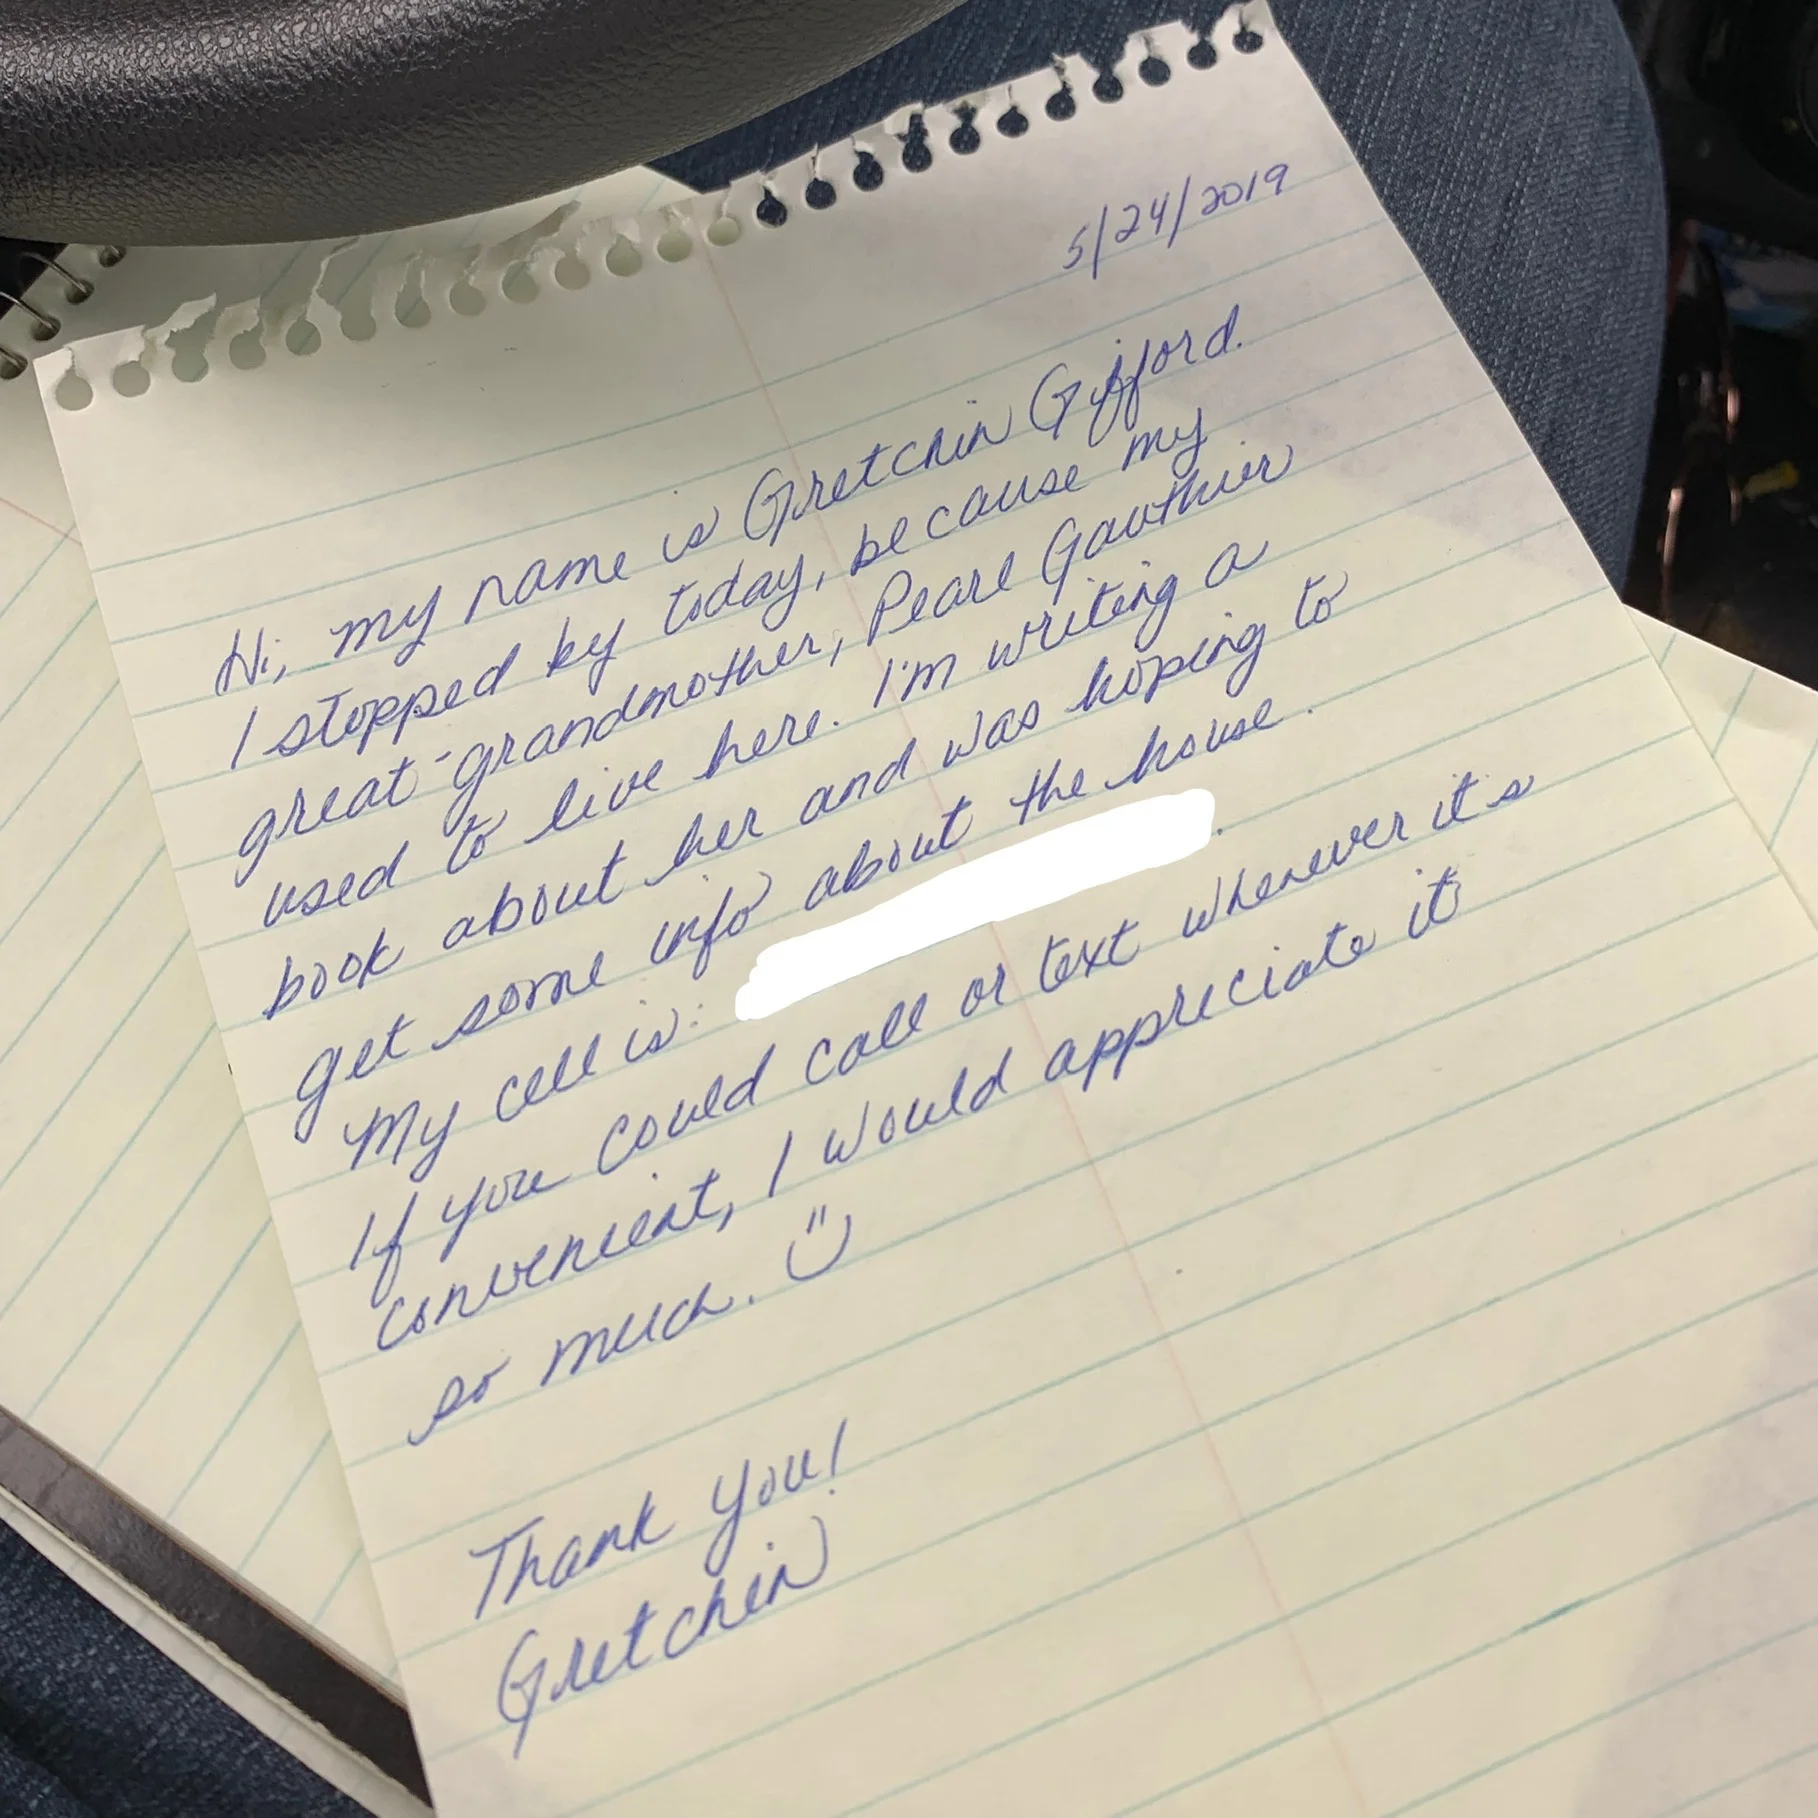 5/24/2019
Hi, my name is Gretchin Gifford.
I stopped by today, because my
great-grandmother, Pearl Gauthier
used to live here. I'm writing a
book about her and was hoping to
get some info about the house.
My cell is: .
If you could call or text whenever it's
convenient, I would appreciate it
so much. :)
Thank You!
Gretchin